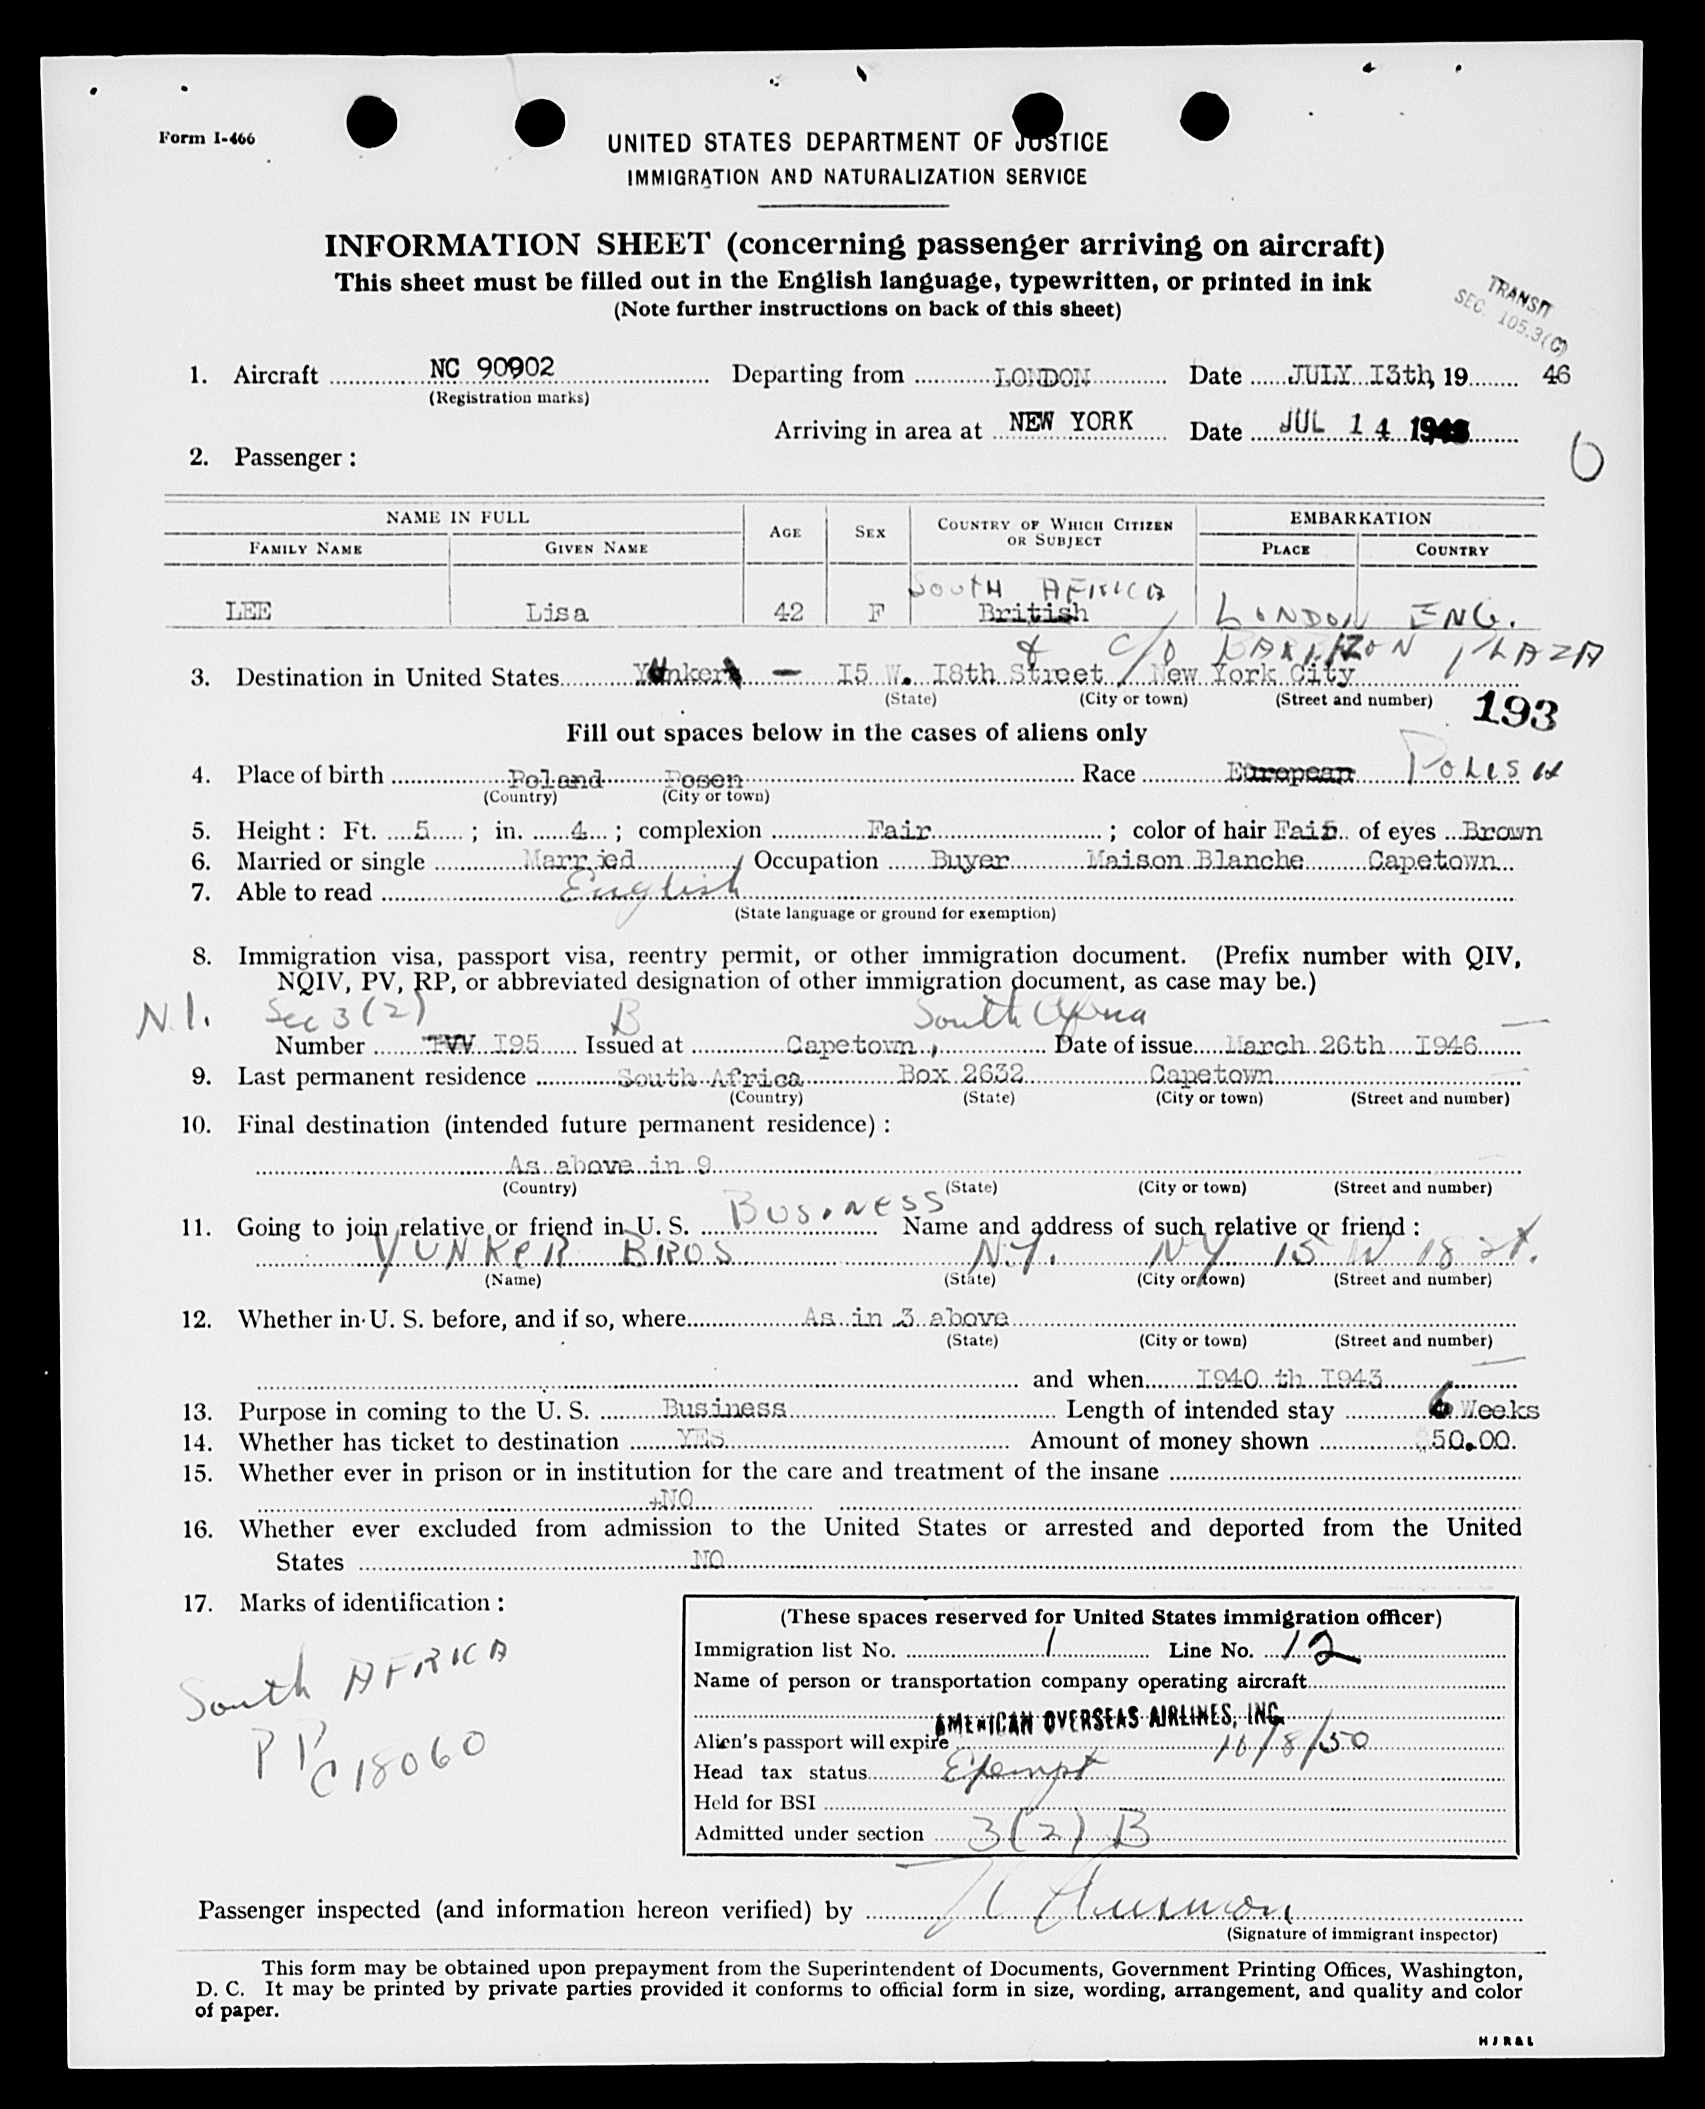 Form I-466
UNITED STATES DEPARTMENT OF JUSTICE
IMMIGRATION AND NATURALIZATION SERVICE
INFORMATION SHEET (concerning passenger arriving on aircraft)
This sheet must be filled out in the English language, typewritten, or printed in ink
(Note further instructions on back of this sheet)
TRANSIT
SEC. 105.3(C)
1. Aircraft NC 90902 Departing from LONDON Date JULY I3th, 19 46
(Registration marks)
Arriving in area at NEW YORK Date JUL 14 1946
6
2. Passenger :
NAME IN FULL AGE SEX COUNTRY OF WHICH CITIZEN OR SUBJECT EMBARKATION
FAMILY NAME GIVEN NAME PLACE COUNTRY
SOUTH AFRICA
LEE Lisa 42 F British LONDON ENG.
& C/O BARBIZON PLAZA
3. Destination in United States Yunkers — I5 W. I8th Street New York City
(State) (City or town) (Street and number)
193
Fill out spaces below in the cases of aliens only
4. Place of birth Poland Posen Race European POLISH
(Country) (City or town)
5. Height : Ft. 5 ; in. 4 ; complexion Fair ; color of hair Fair of eyes Brown
6. Married or single Married Occupation Buyer Maison Blanche Capetown
7. Able to read English
(State language or ground for exemption)
8. Immigration visa, passport visa, reentry permit, or other immigration document. (Prefix number with QIV,
NQIV, PV, RP, or abbreviated designation of other immigration document, as case may be.)
N.I. Sec 3(2) B South Africa
Number I95 Issued at Capetown, Date of issue March 26th I946
9. Last permanent residence South Africa Box 2632 Capetown
(Country) (State) (City or town) (Street and number)
10. Final destination (intended future permanent residence) :
As above in 9
(Country) (State) (City or town) (Street and number)
11. Going to join relative or friend in U. S. BUSINESS Name and address of such relative or friend :
YUNKER BROS N.Y. NY 15 W 18 St.
(Name) (State) (City or town) (Street and number)
12. Whether in U. S. before, and if so, where As in 3 above
(State) (City or town) (Street and number)
and when I940 th I943
13. Purpose in coming to the U. S. Business Length of intended stay 6 Weeks
14. Whether has ticket to destination YES Amount of money shown 50.00.
15. Whether ever in prison or in institution for the care and treatment of the insane
NO
16. Whether ever excluded from admission to the United States or arrested and deported from the United
States NO
17. Marks of identification :
South AFRICA
PP C18060
(These spaces reserved for United States immigration officer)
Immigration list No. 1 Line No. 12
Name of person or transportation company operating aircraft
AMERICAN OVERSEAS AIRLINES, INC.
Alien's passport will expire 10/8/50
Head tax status Exempt
Held for BSI
Admitted under section 3(2) B
Passenger inspected (and information hereon verified) by
(Signature of immigrant inspector)
This form may be obtained upon prepayment from the Superintendent of Documents, Government Printing Offices, Washington,
D. C. It may be printed by private parties provided it conforms to official form in size, wording, arrangement, and quality and color
of paper.
H J R & L